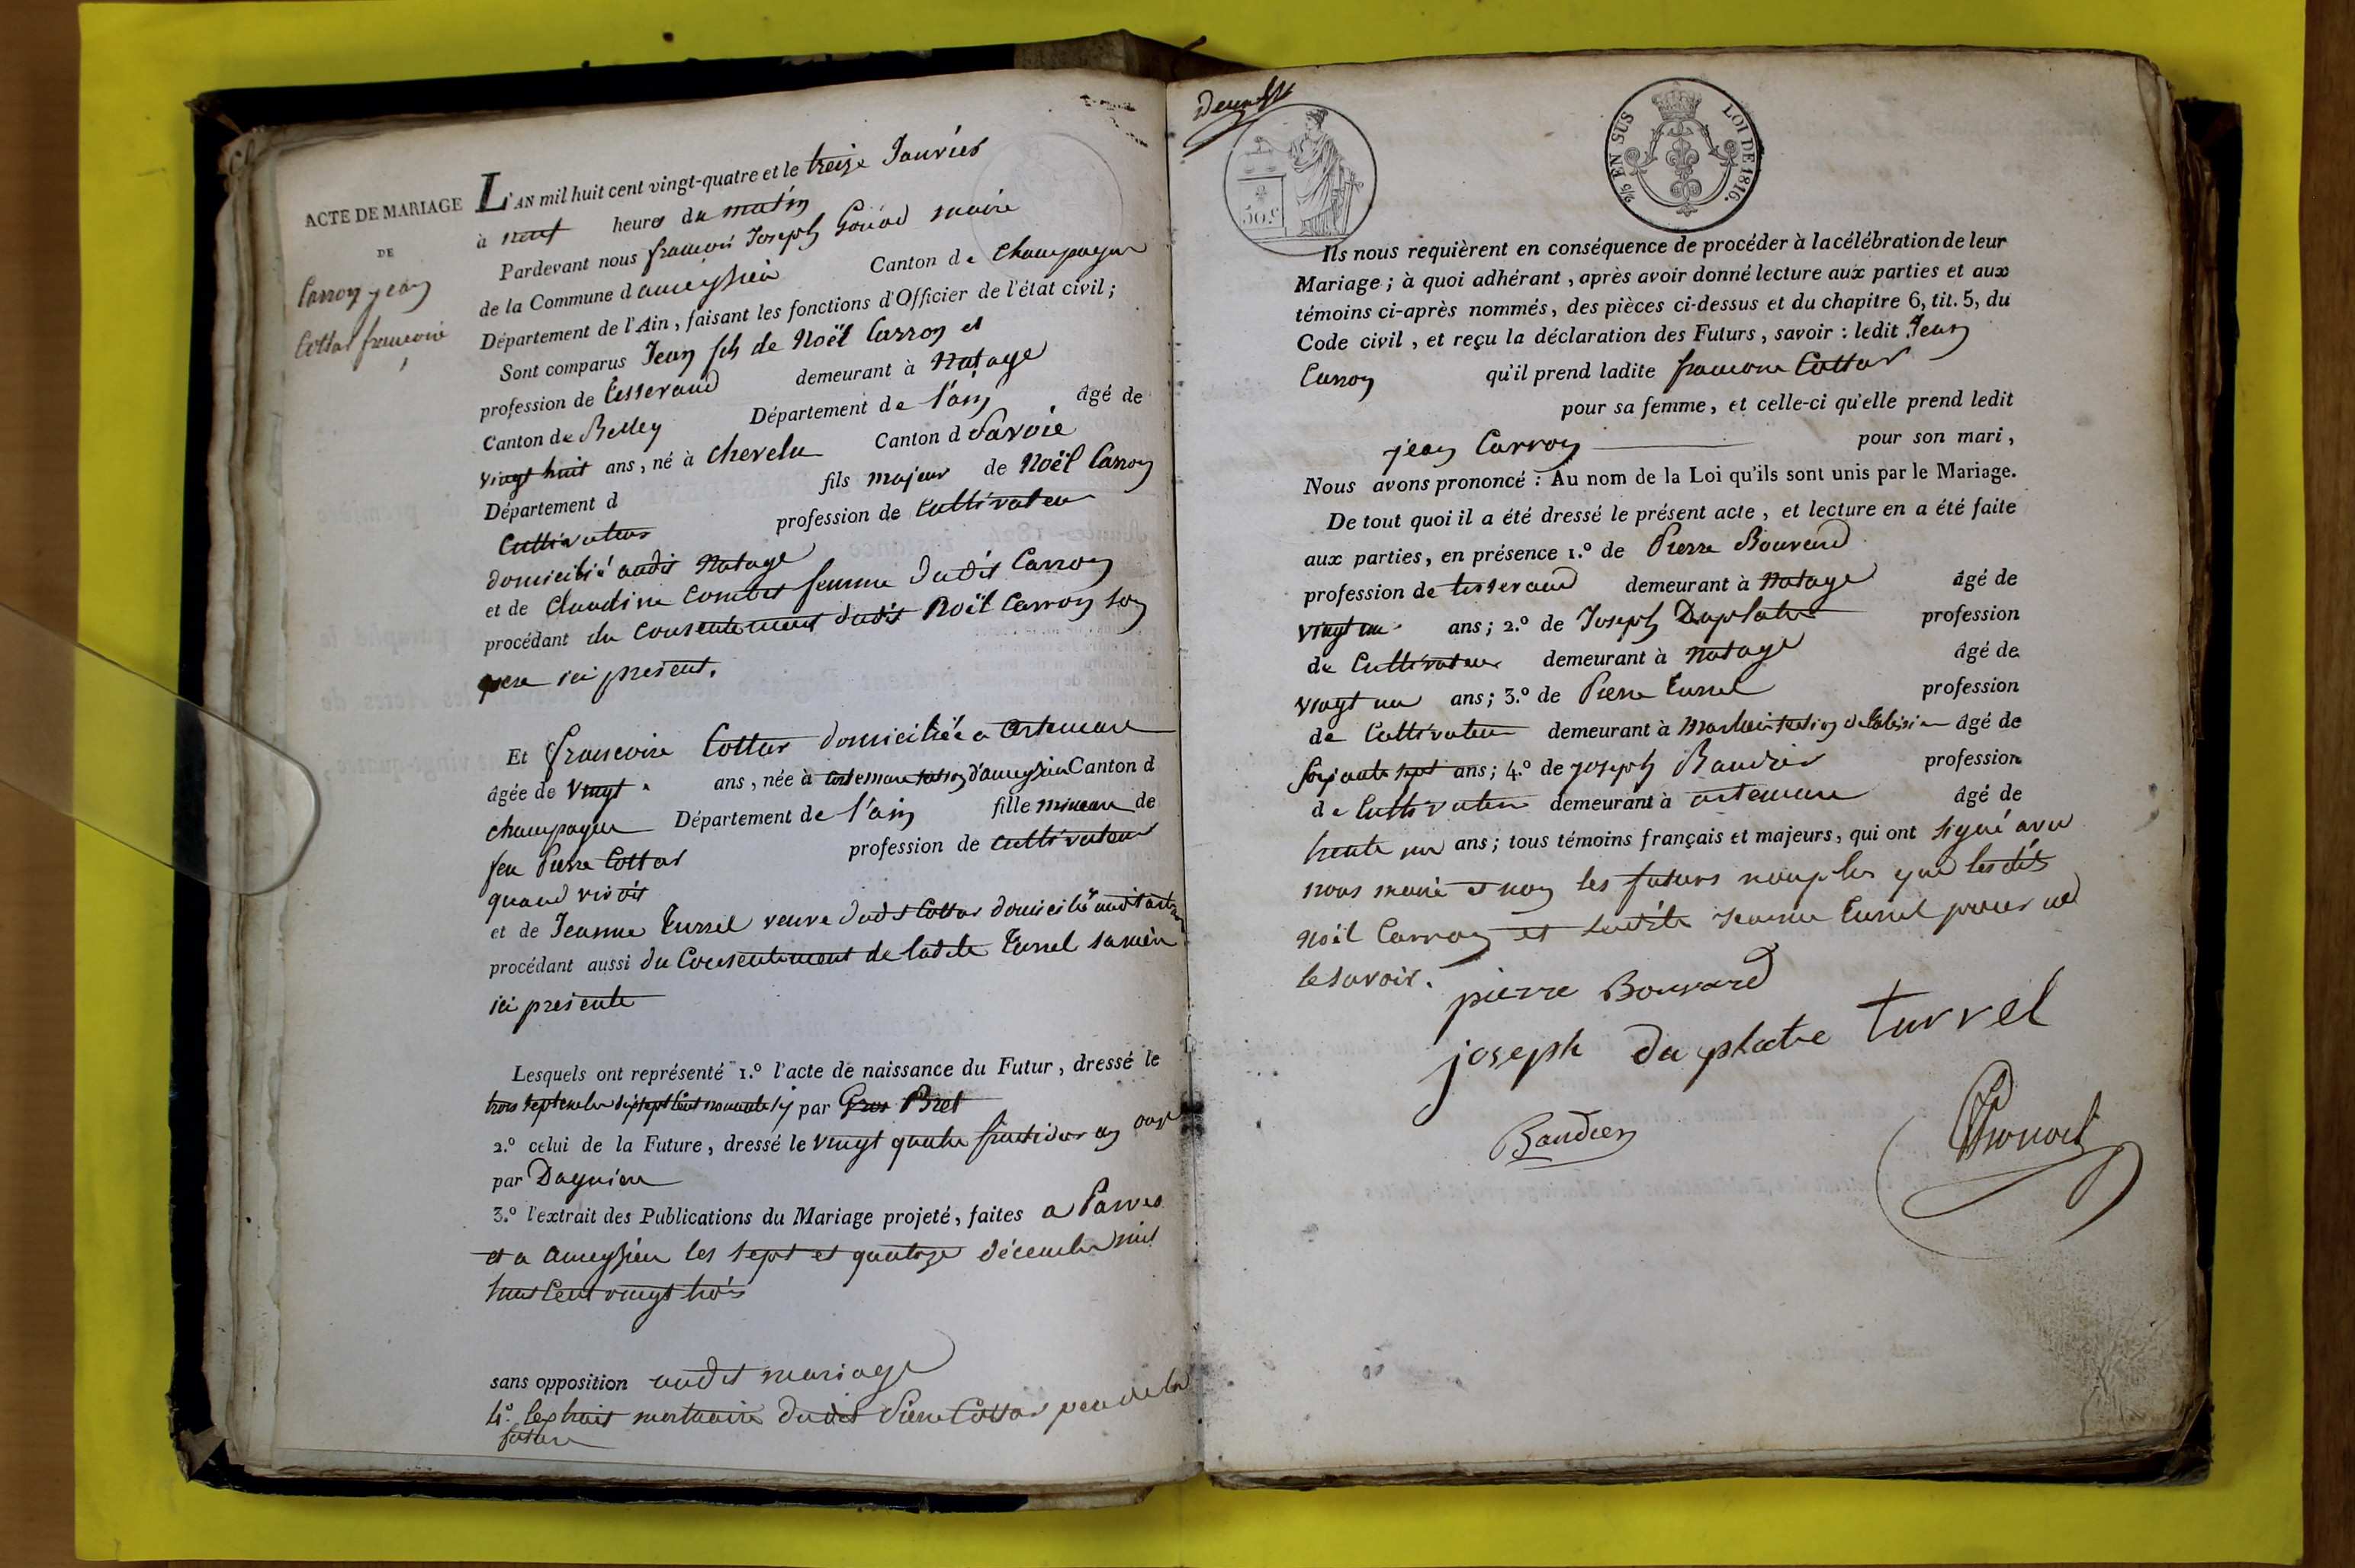 ACTE DE MARIAGE
DE
Carron jean
Cottar francoise
L'AN mil huit cent vingt-quatre et le treize Janvier
à neuf heures du matin
Pardevant nous francois Joseph maire
de la Commune d'ameyzieu Canton de Champagne
Département de l'Ain, faisant les fonctions d'Officier de l'état civil;
Sont comparus Jean fils de Noël Carron et
profession de tisserand demeurant à Natage
Canton de Belley Département de l'ain âgé de
vingt huit ans, né à chevelu Canton d Savoie
Département d fils majeur de Noël Carron
Cultivateur profession de Cultivateur
domicilié audit Natage
et de Claudine Combet femme dudit Carron
procédant du Consentement dudit Noël Carron son
pere ici présent.
Et francoise Cottar domiciliée a artemare
âgée de vingt ans, née à artemare d'ameyzieu Canton d
champagne Département de l'ain fille mineure de
feu Pierre Cottar profession de cultivateur
quand vivoit
et de Jeanne Turrel veuve dudit Cottar domicilié audit
procédant aussi du Consentement de ladite Turrel sa mère
ici présente
Lesquels ont représenté 1.º l'acte de naissance du Futur, dressé le
trois septembre dix sept cent nonante par Gros Bret
2.º celui de la Future, dressé le vingt quatre fructidor an onze
par Dagnieu
3.º l'extrait des Publications du Mariage projeté, faites a Parves
et a ameyzieu les sept et quatorze décembre mil
huit Cent vingt trois
sans opposition audit mariage
4º. l'extrait mortuaire dudit Pierre Cottar pere de la
future
50.c
2/5 EN SUS LOI DE 1816.
Ils nous requièrent en conséquence de procéder à la célébration de leur
Mariage; à quoi adhérant, après avoir donné lecture aux parties et aux
témoins ci-après nommés, des pièces ci-dessus et du chapitre 6, tit. 5, du
Code civil, et reçu la déclaration des Futurs, savoir : ledit Jean
Carron qu'il prend ladite francoise Cottar
pour sa femme, et celle-ci qu'elle prend ledit
jean Carron pour son mari,
Nous avons prononcé : Au nom de la Loi qu'ils sont unis par le Mariage.
De tout quoi il a été dressé le présent acte, et lecture en a été faite
aux parties, en présence 1.º de Pierre Bouvard
profession de tisserand demeurant à Natage âgé de
vingt un ans; 2.º de Joseph Duplatre profession
de Cultivateur demeurant à Natage âgé de
vingt un ans; 3.º de Pierre Turrel profession
de Cultivateur demeurant à âgé de
soixante sept ans; 4.º de joseph Baudier profession
de Cultivateur demeurant à artemare âgé de
trente un ans; tous témoins français et majeurs, qui ont signé avec
nous maire et non les futurs non plus que lesdits
Noël Carron et ladite Jeanne Turrel pour ne
le savoir.
pierre Bouvard
joseph duplatre turrel